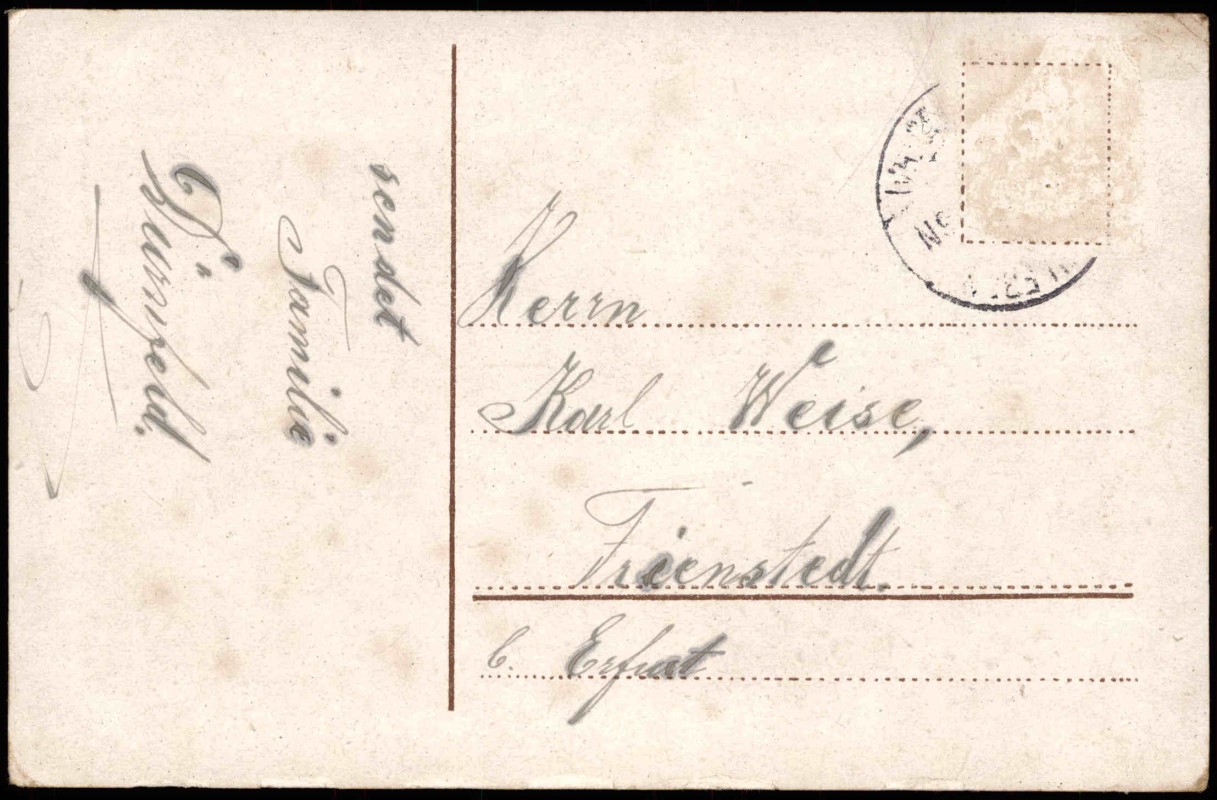 sendet
Familie
Dürrfeld.
Herrn
Karl Weise,
Frienstedt.
b. Erfurt